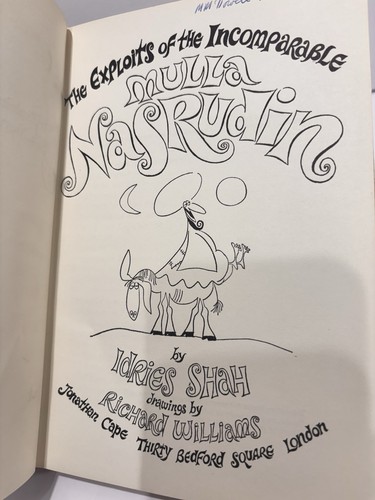 The Exploits of the Incomparable
Mulla
Nasrudin
by
Idries Shah
drawings by
Richard Williams
Jonathan Cape Thirty Bedford Square London